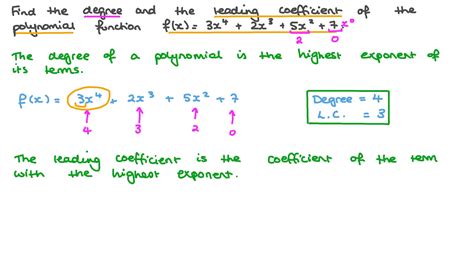 Find the degree and the leading coefficient of the
polynomial function f(x) = 3x⁴ + 2x³ + 5x² + 7x⁰
2 0
The degree of a polynomial is the highest exponent of
its terms.
f(x) = 3x⁴ + 2x³ + 5x² + 7
4 3 2 0
Degree = 4
L.C. = 3
The leading coefficient is the coefficient of the term
with the highest exponent.